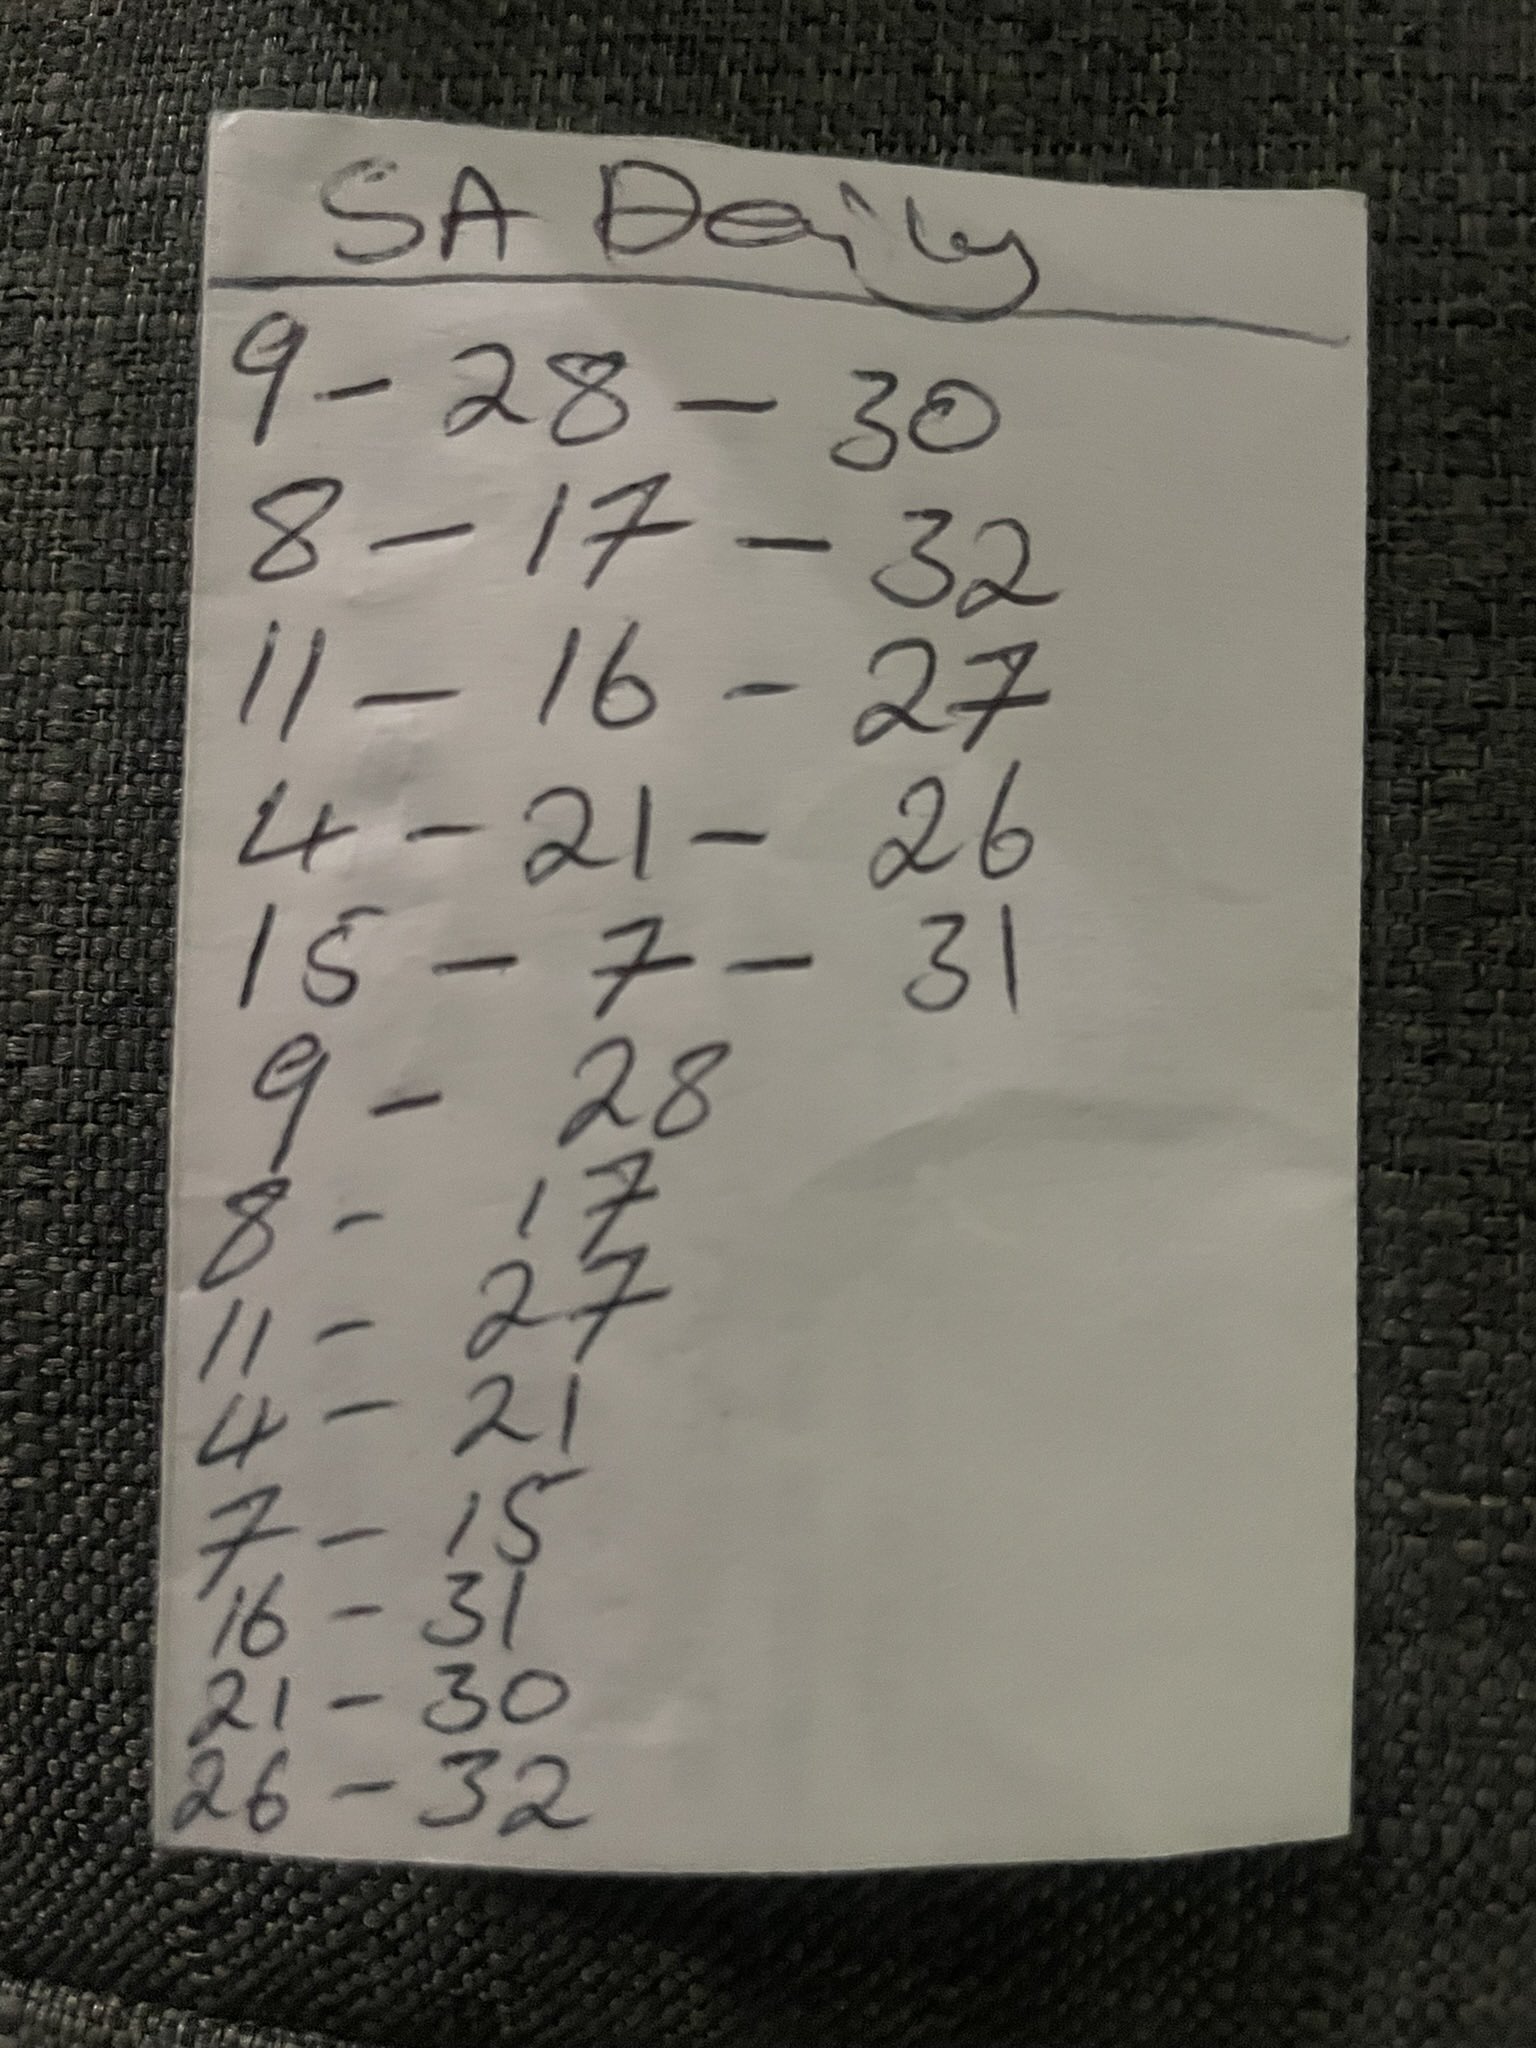 SA Daily
9 - 28 - 30
8 - 17 - 32
11 - 16 - 27
4 - 21 - 26
15 - 7 - 31
9 - 28
8 - 17
11 - 27
4 - 21
7 - 15
16 - 31
21 - 30
26 - 32